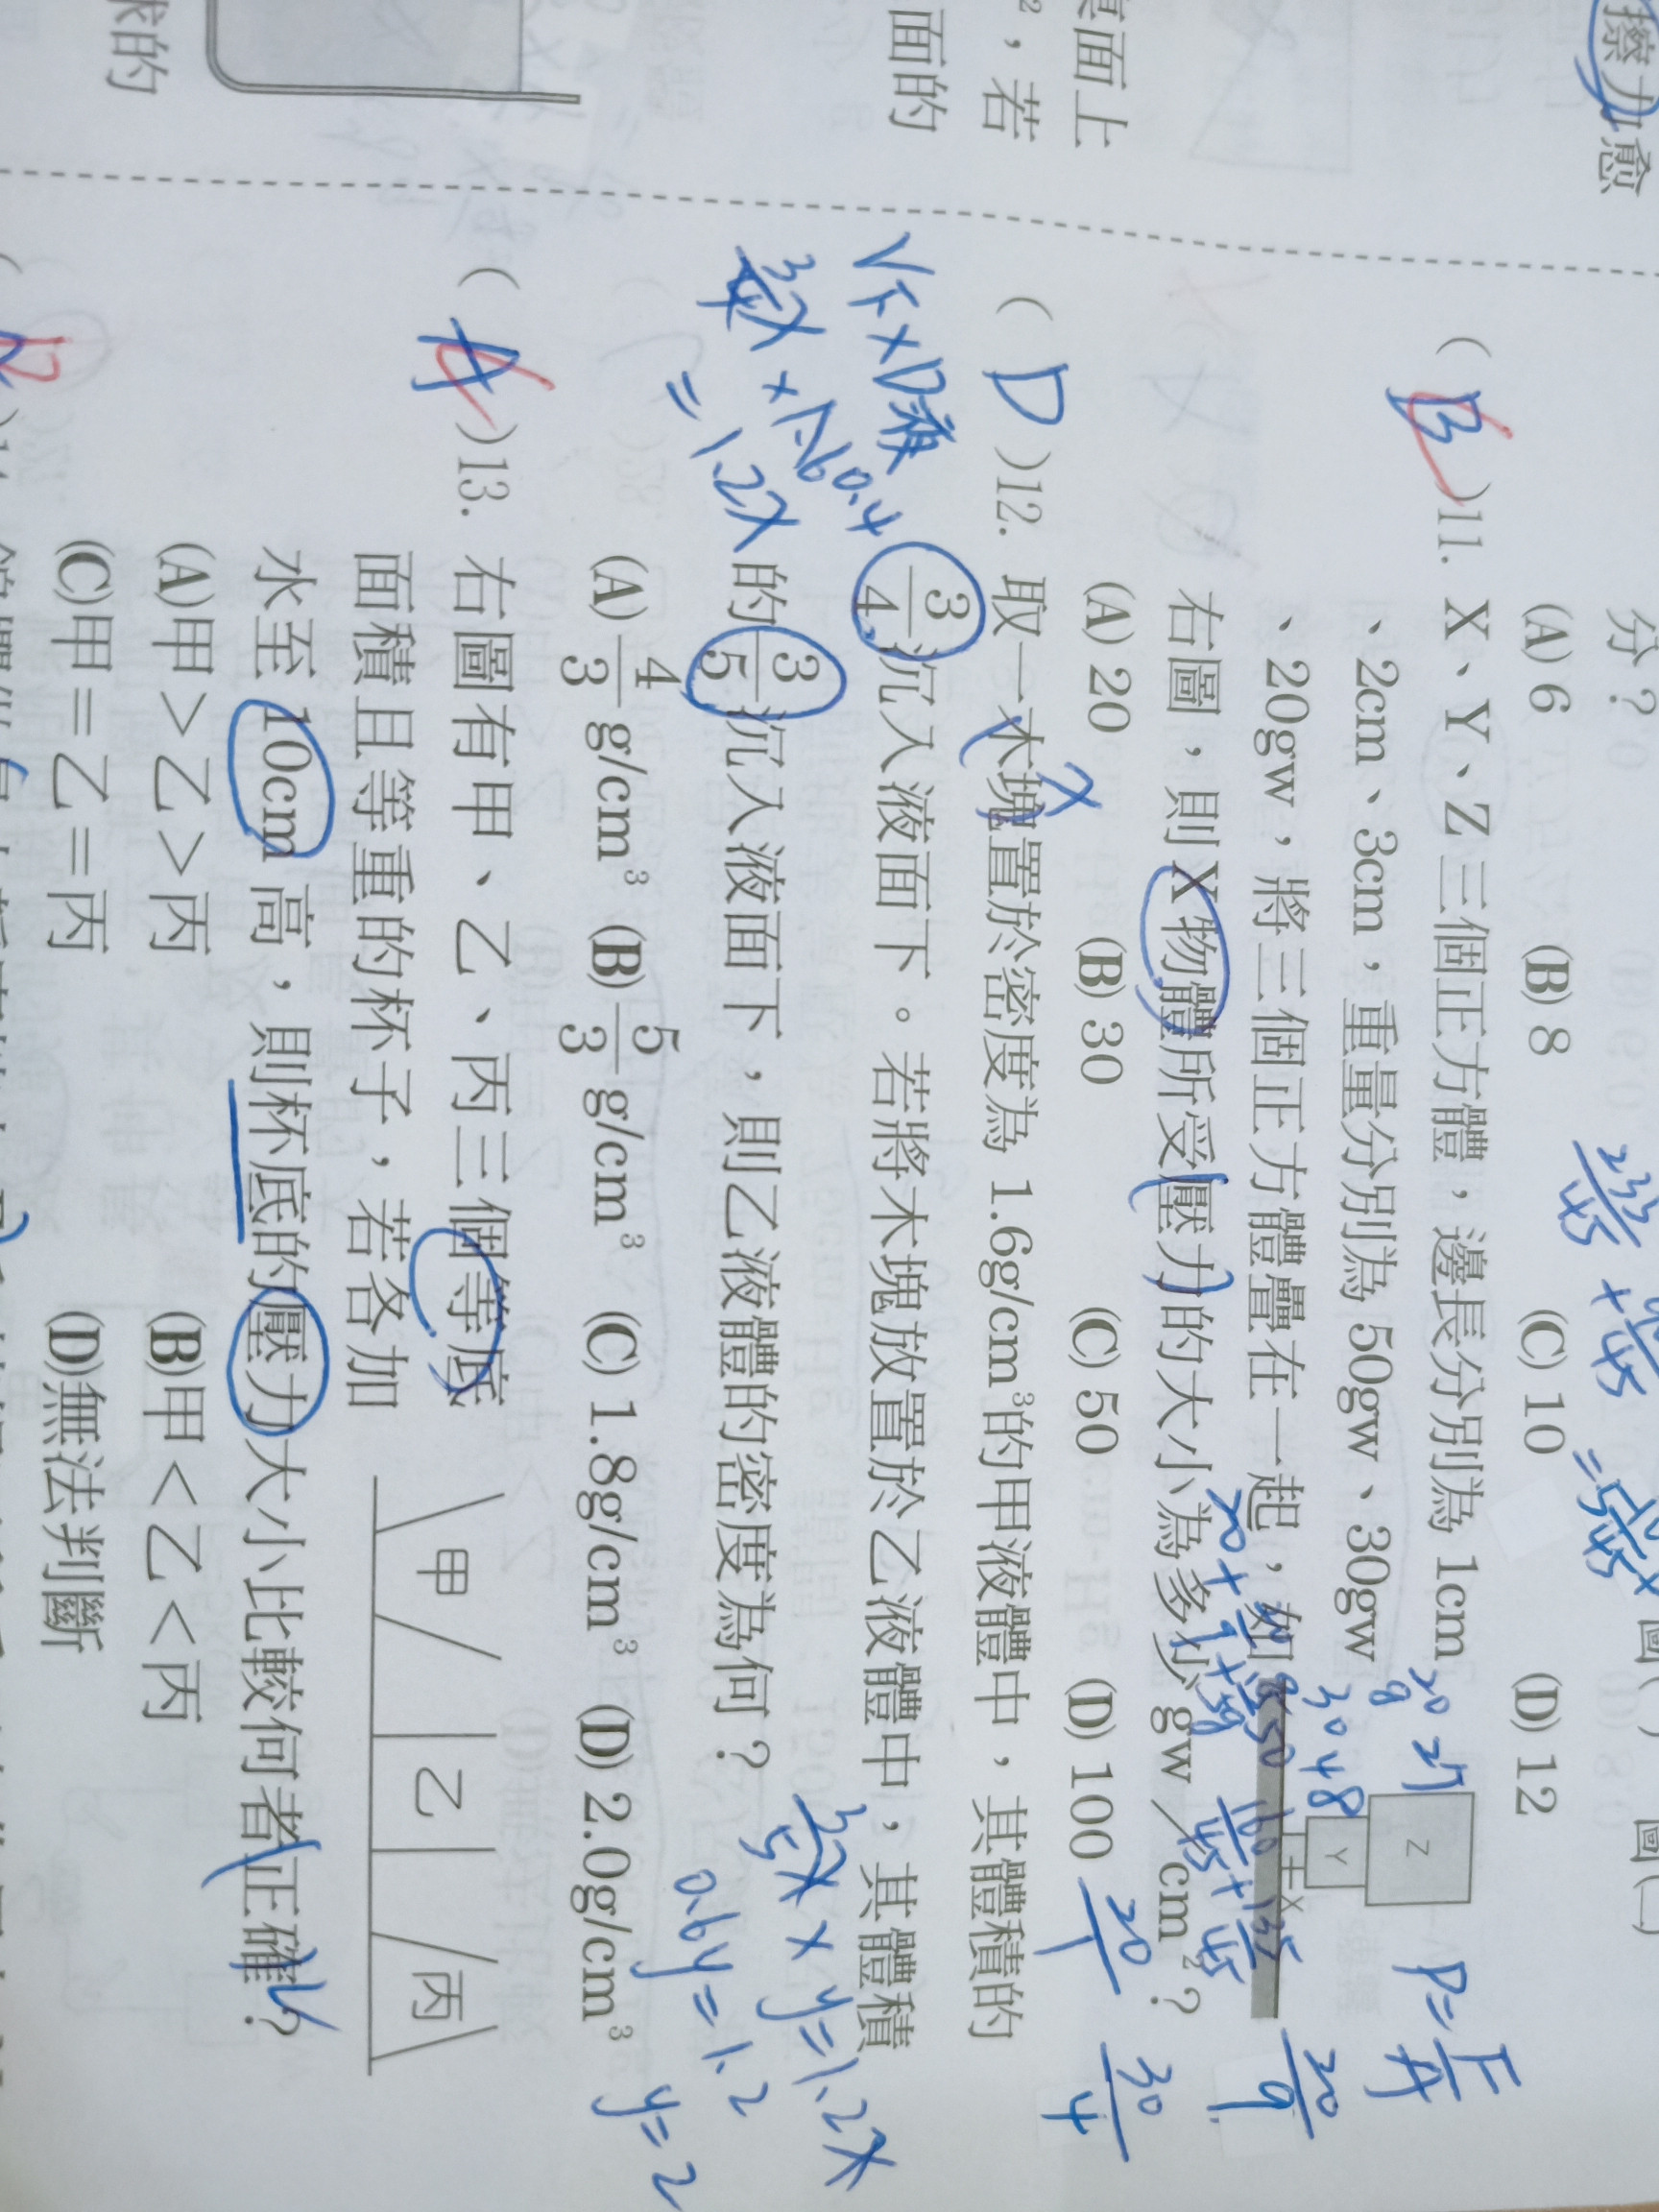 擦力愈
真面上
²，若
面的
求的
分？
(A) 6 (B) 8 (C) 10 (D) 12
( B )11. X、Y、Z 三個正方體，邊長分別為 1cm
、2cm、3cm，重量分別為 50gw、30gw
、20gw，將三個正方體疊在一起，如
右圖，則 X 物體所受壓力的大小為多少 gw／cm²？
(A) 20 (B) 30 (C) 50 (D) 100
Z
Y
X
20 27
30 48
P=F/A
20/9
20/1
30/4
( D )12. 取一木塊置於密度為 1.6g/cm³的甲液體中，其體積的
X
3/4 沉入液面下。若將木塊放置於乙液體中，其體積
的 3/5 沉入液面下，則乙液體的密度為何？
(A) 4/3 g/cm³ (B) 5/3 g/cm³ (C) 1.8g/cm³ (D) 2.0g/cm³
V下×D液
3/4X × 1.6 0.4
=1.2X
3/5X × y=1.2X
0.6y=1.2
y=2
( A )13. 右圖有甲、乙、丙三個等底
面積且等重的杯子，若各加
水至 10cm 高，則杯底的壓力大小比較何者正確？
(A)甲＞乙＞丙 (B)甲＜乙＜丙
(C)甲＝乙＝丙 (D)無法判斷
甲 乙 丙